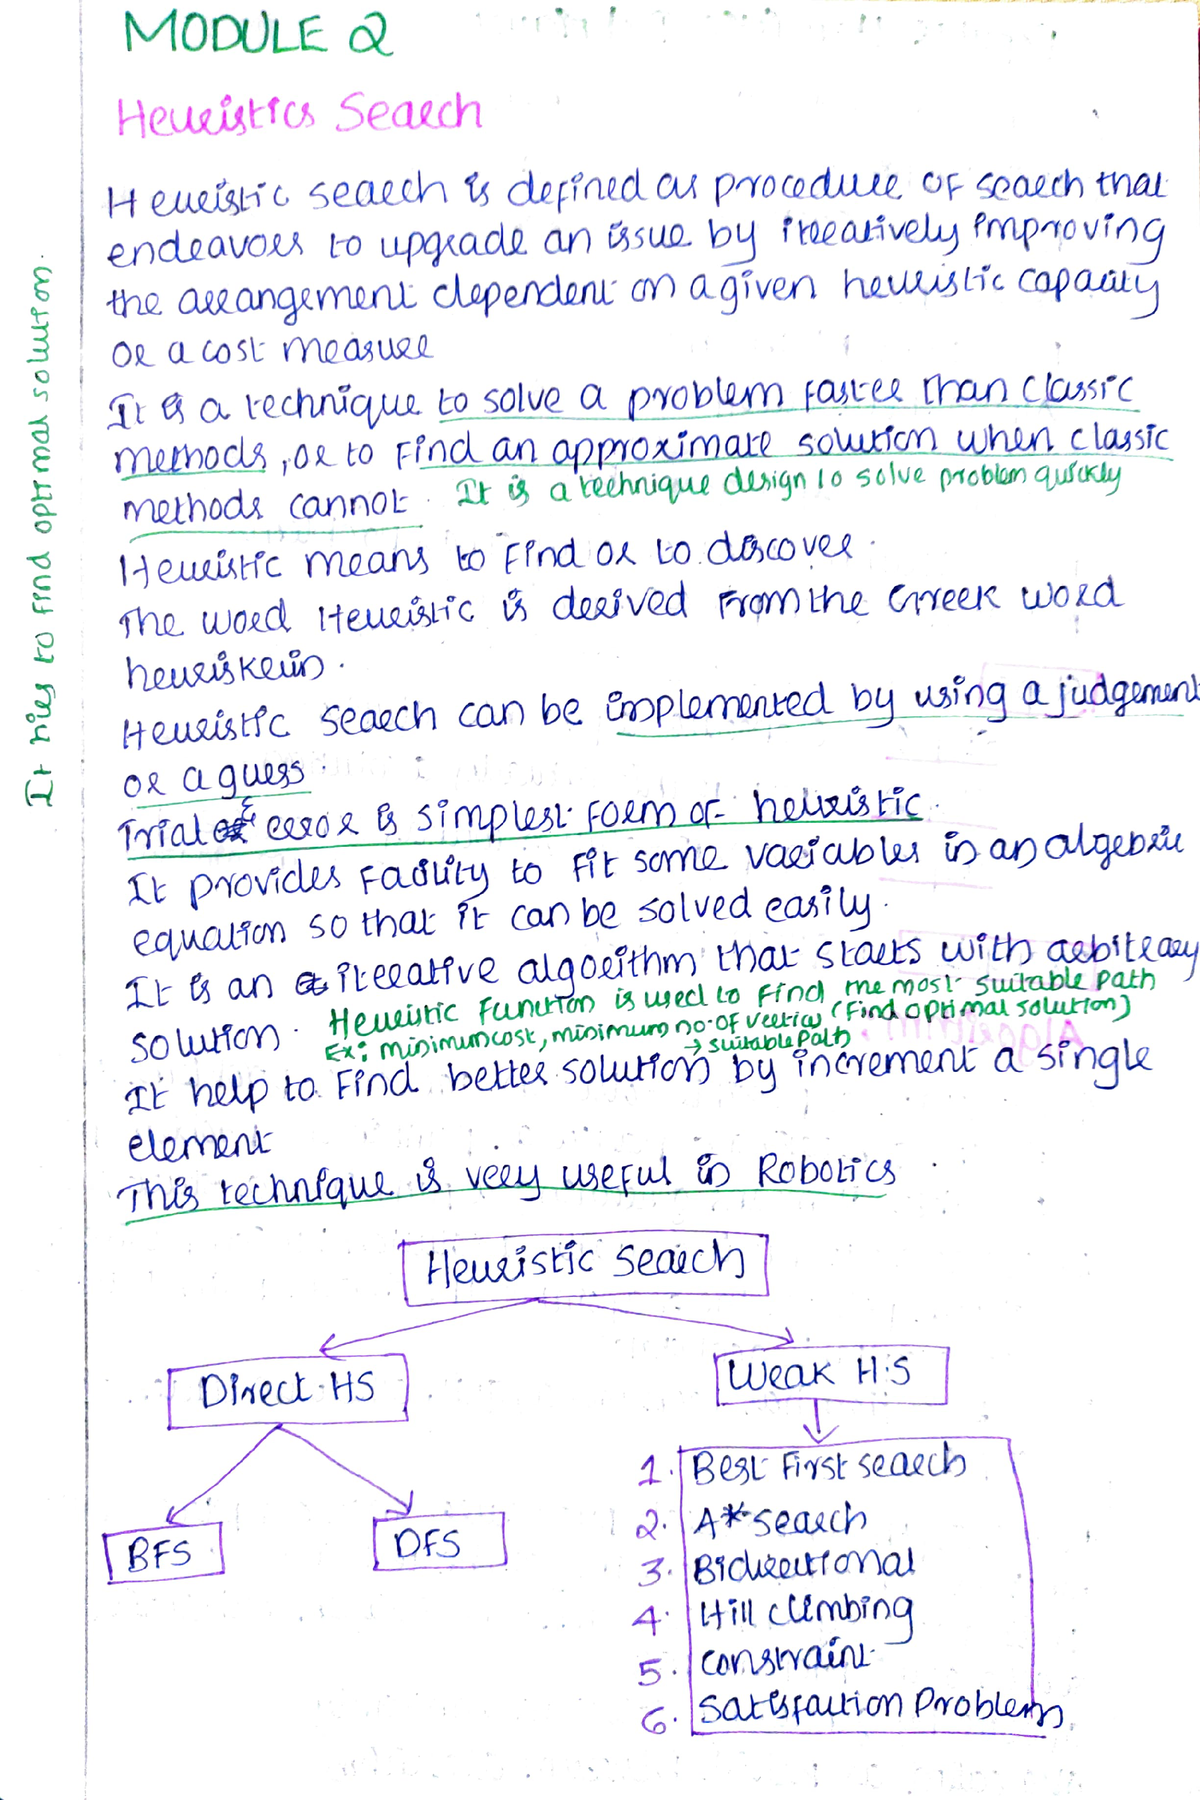 MODULE 2
Heuristics Search
Heuristic search is defined as procedure of search that
endeavors to upgrade an issue by iteratively improving
the arrangement dependent on a given heuristic capacity
or a cost measure
It is a technique to solve a problem faster than classic
methods, or to find an approximate solution when classic
methods cannot. It is a technique design to solve problem quickly
Heuristic means to find or to discover.
The word Heuristic is derived from the Greek word
heuriskein.
Heuristic search can be implemented by using a judgement
or a guess.
Trial & error is simplest form of heuristic.
It provides facility to fit some variables in an algebric
equation so that it can be solved easily.
It is an iterative algorithm that starts with arbitrary
solution. Heuristic function is used to find the most suitable path
Ex: minimum cost, minimum no. of vertices (find optimal solution)
→ suitable path
It help to find better solution by increment a single
element
This technique is very useful in Robotics
It tries to find optimal solution.
Heuristic search
Direct HS
Weak H.S
BFS
DFS
1. Best First search
2. A* search
3. Bidirectional
4. Hill climbing
5. constraint
6. Satisfaction Problems